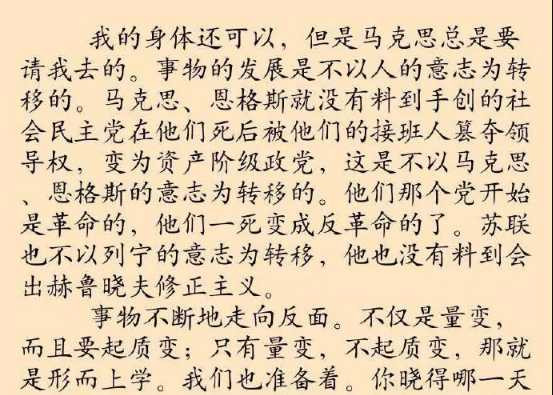 我的身体还可以，但是马克思总是要
请我去的。事物的发展是不以人的意志为转
移的。马克思、恩格斯就没有料到手创的社
会民主党在他们死后被他们的接班人篡夺领
导权，变为资产阶级政党，这是不以马克思
、恩格斯的意志为转移的。他们那个党开始
是革命的，他们一死变成反革命的了。苏联
也不以列宁的意志为转移，他也没有料到会
出赫鲁晓夫修正主义。
事物不断地走向反面。不仅是量变，
而且要起质变；只有量变，不起质变，那就
是形而上学。我们也准备着。你晓得哪一天